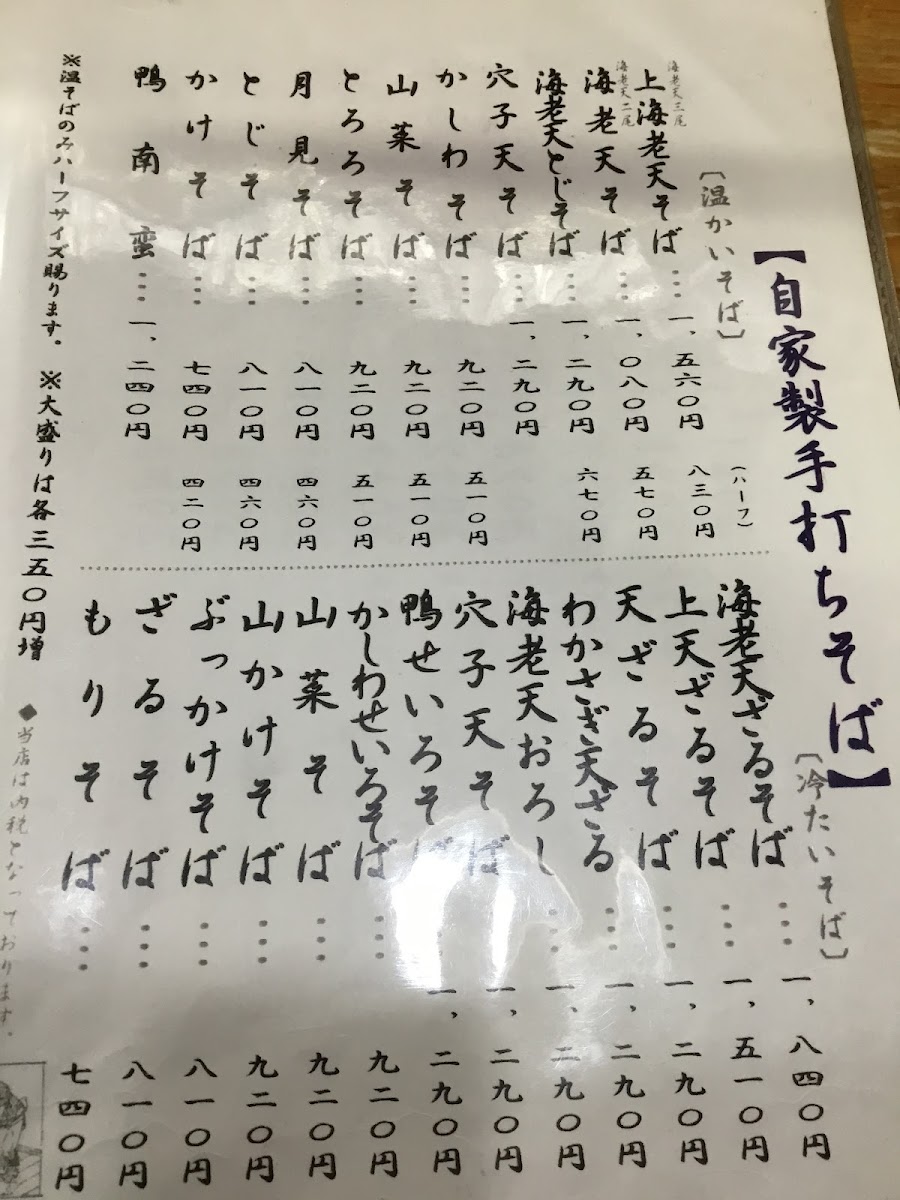 【自家製手打ちそば】
〔温かいそば〕
(ハーフ)
海老天三尾
上海老天そば…一、五六〇円 八三〇円
海老天二尾
海老天そば…一、〇八〇円 五七〇円
海老天とじそば…一、二九〇円 六七〇円
穴子天そば…一、二九〇円
かしわそば…九二〇円 五一〇円
山菜そば…九二〇円 五一〇円
とろろそば…九二〇円 五一〇円
月見そば…八一〇円 四六〇円
とじそば…八一〇円 四六〇円
かけそば…七四〇円 四二〇円
鴨南蛮…一、二四〇円
※温そばのみハーフサイズ賜ります。 ※大盛りは各三五〇円増
〔冷たいそば〕
海老天ざるそば…一、八四〇円
上天ざるそば…一、五一〇円
天ざるそば…一、二九〇円
わかさぎ天ざる…一、二九〇円
海老天おろし…一、二九〇円
穴子天そば…一、二九〇円
鴨せいろそば…一、二九〇円
かしわせいろそば…九二〇円
山菜そば…九二〇円
山かけそば…九二〇円
ぶっかけそば…八一〇円
ざるそば…八一〇円
もりそば…七四〇円
◆当店は内税となっております。